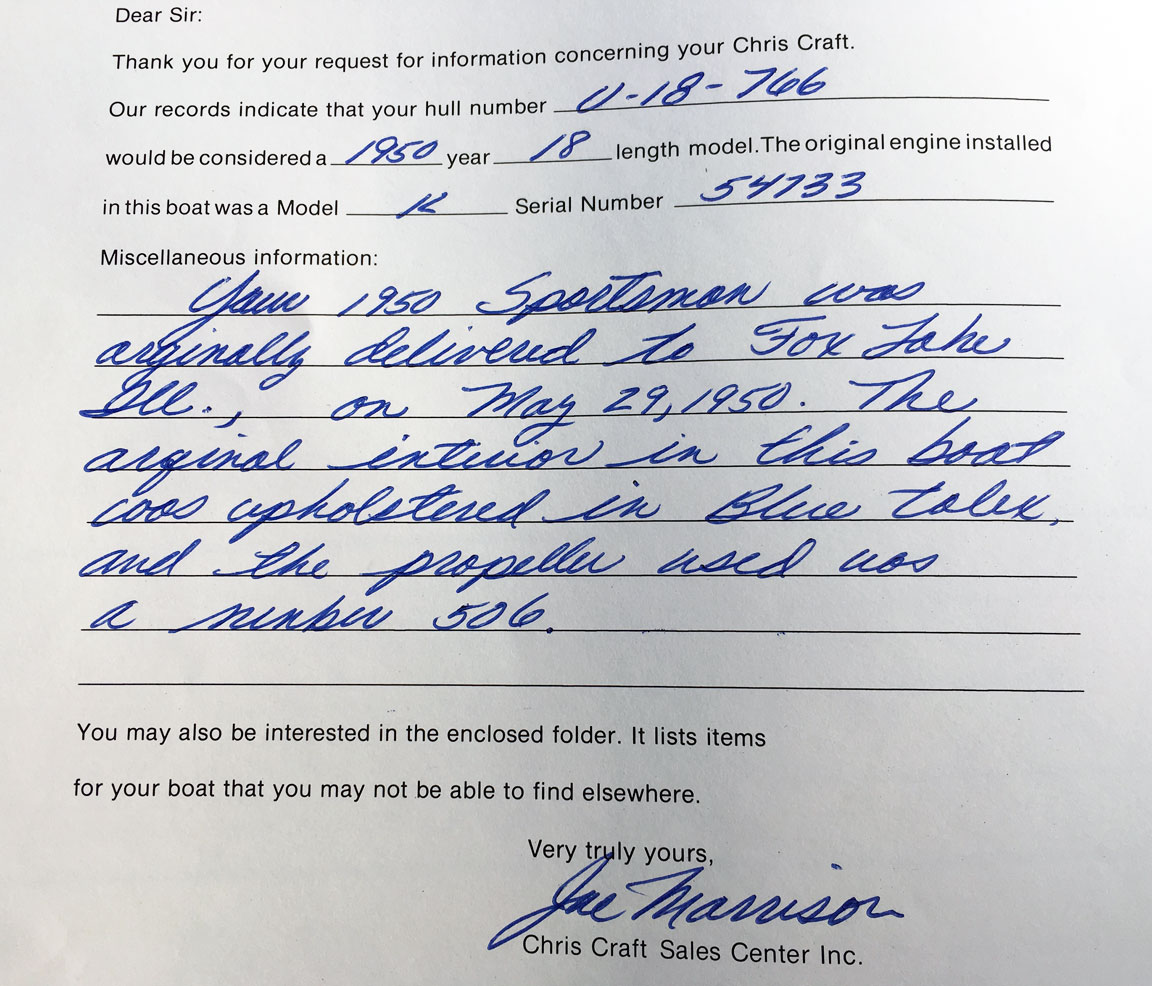 Dear Sir:
Thank you for your request for information concerning your Chris Craft.
Our records indicate that your hull number U-18-766
would be considered a 1950 year 18 length model. The original engine installed
in this boat was a Model K Serial Number 54733
Miscellaneous information:
Your 1950 Sportsman was
orginally delivered to Fox Lake
Ill., on May 29, 1950. The
orginal interior in this boat
was upholstered in Blue tolex,
and the propeller used was
a number 506.
You may also be interested in the enclosed folder. It lists items
for your boat that you may not be able to find elsewhere.
Very truly yours,
Joe Morrison
Chris Craft Sales Center Inc.